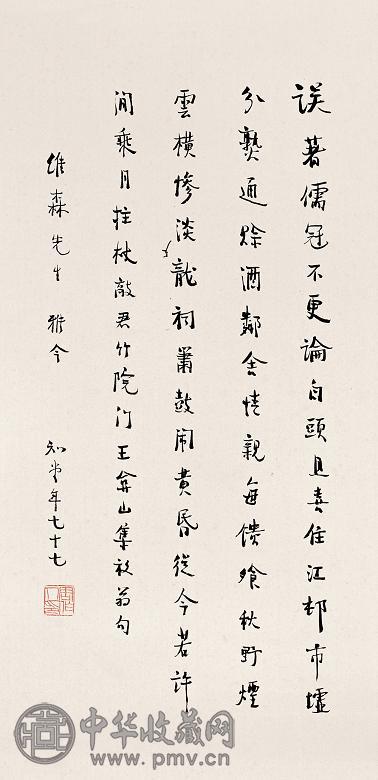 誤著儒冠不更論白頭且喜住江邨市壚
分熟通賒酒鄰舍情親每饋飧秋野煙
雲橫慘淡龍祠簫鼓鬧黄昏從今若許
閒乘月拄杖敲君竹院门王弇山集放翁句
維森先生雅令
知堂年七十七
中华收藏网
www.pmv.cn